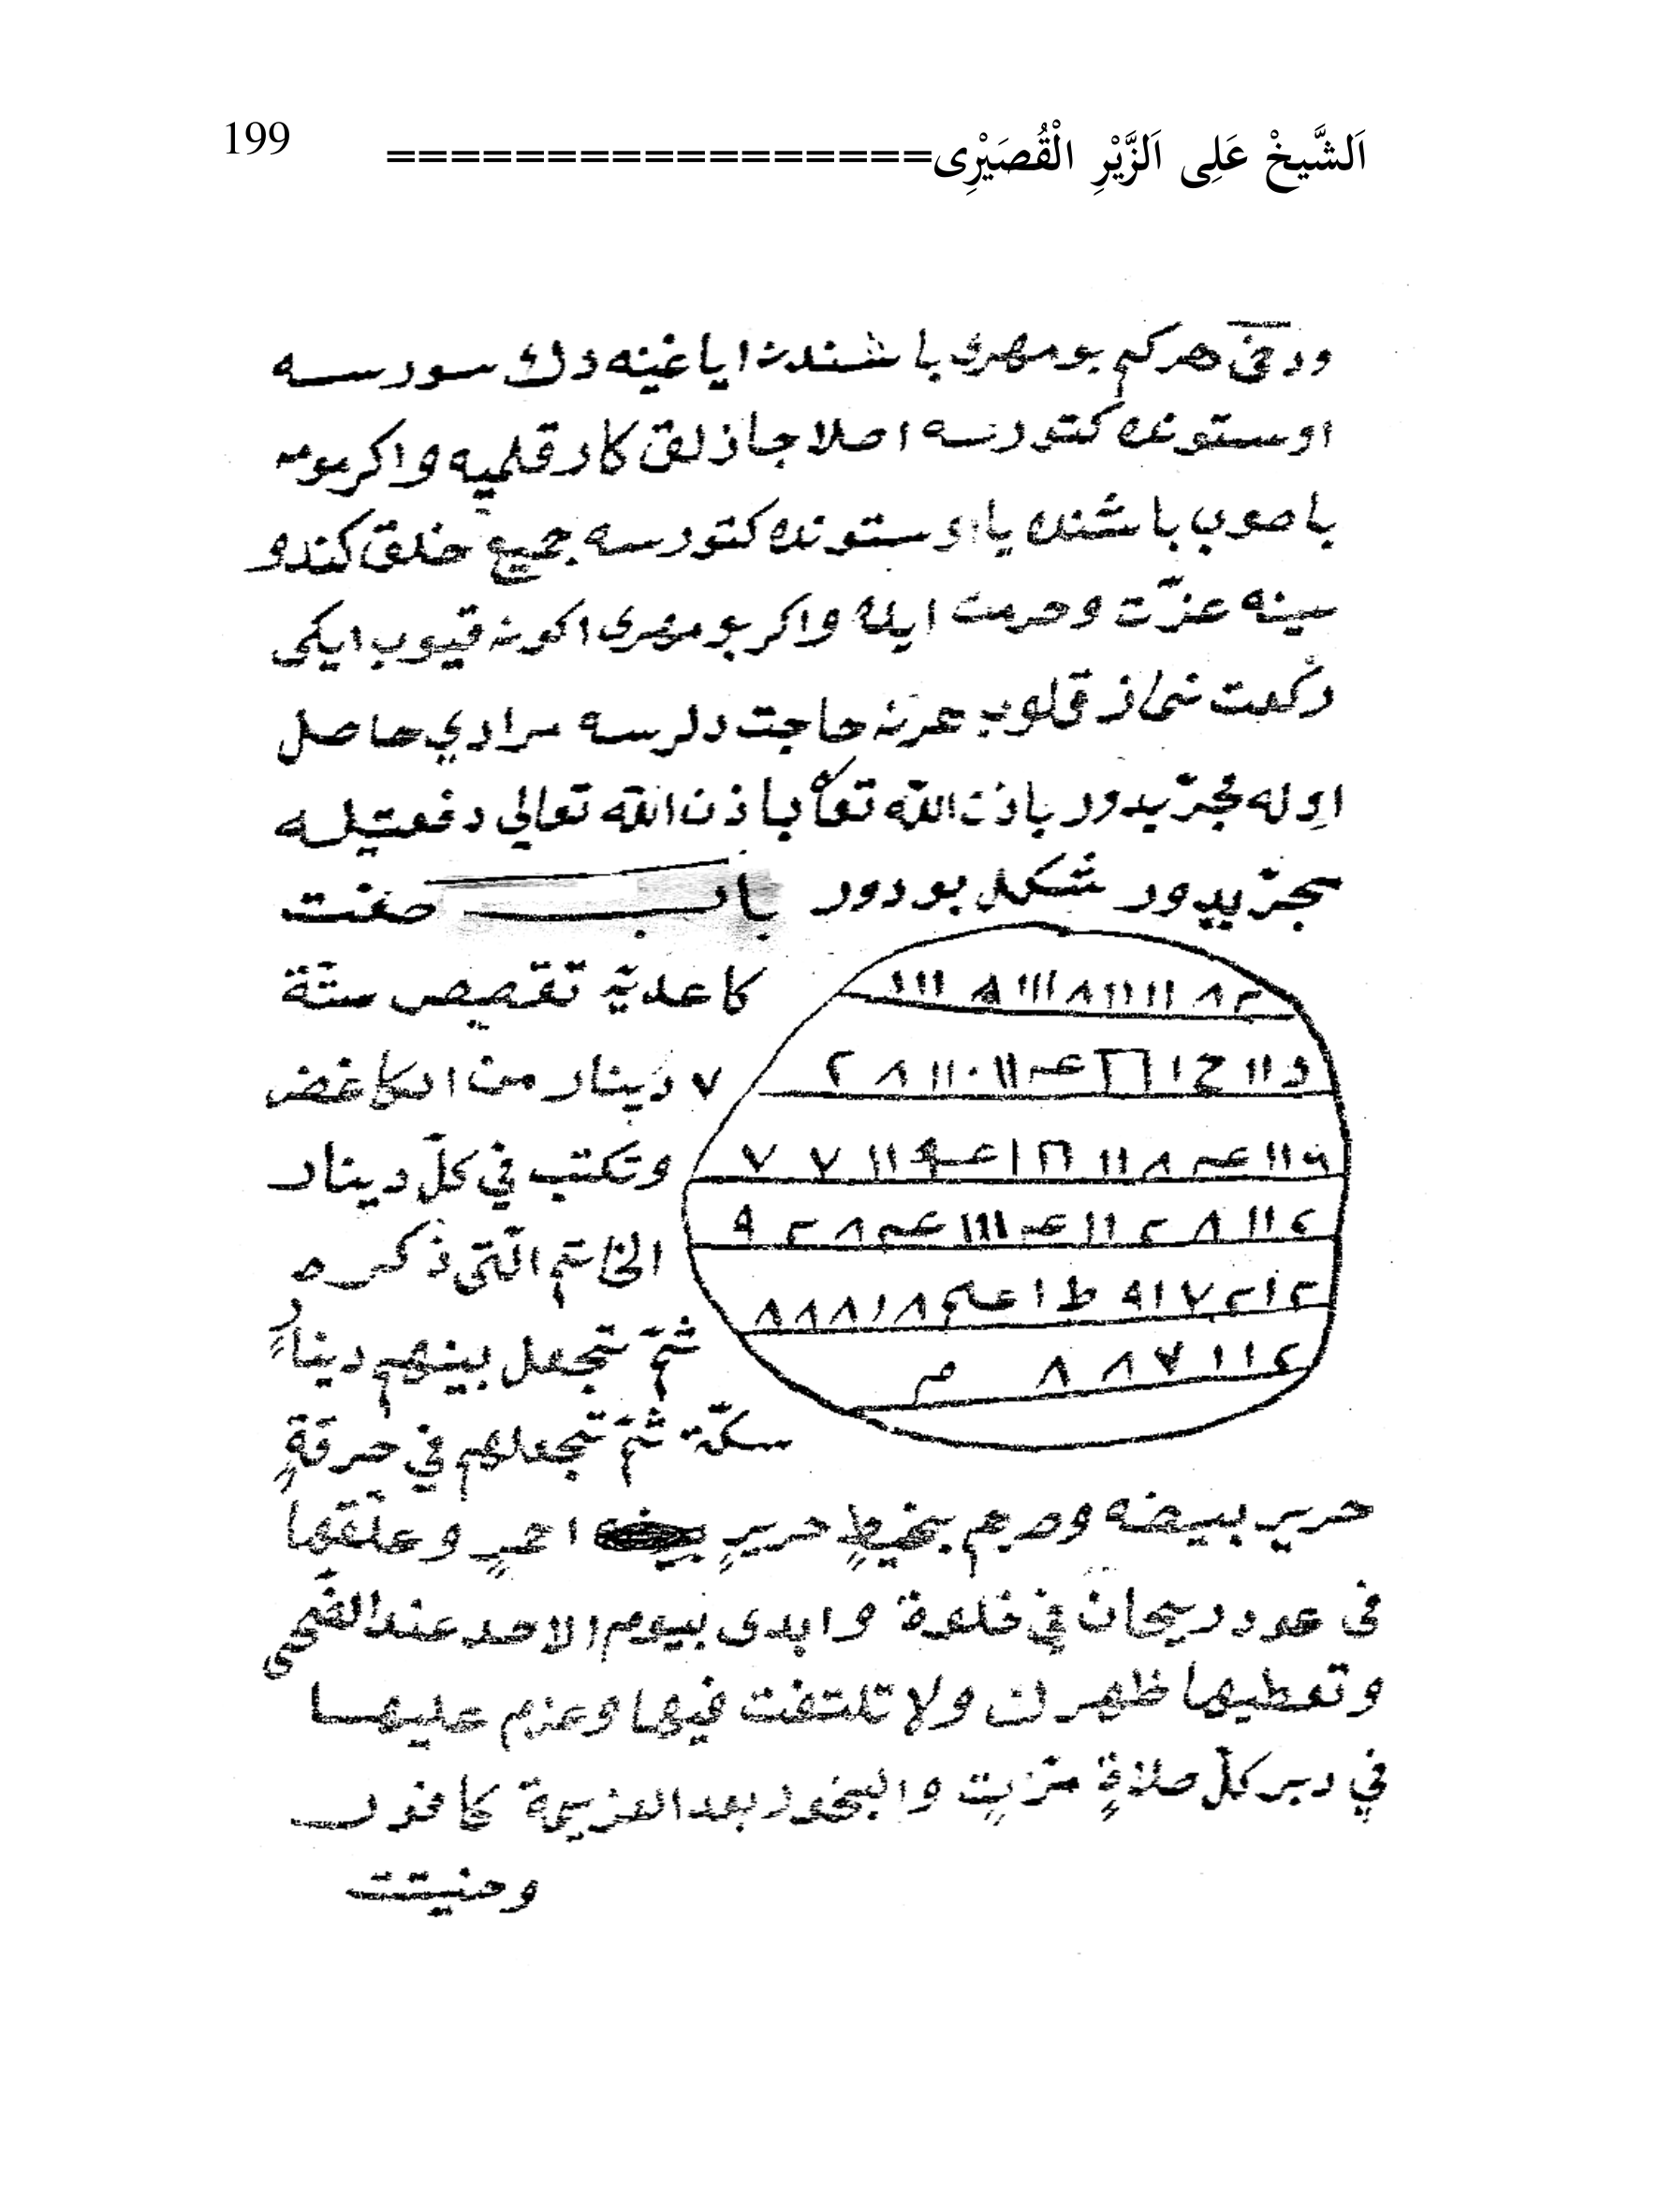 199 =================اَلشَّيخْ عَلِى اَلزَّيْرِ الْقُصَيْرِى
ودخى هركم بو مهرى باشندن اياغينه دك سورسه
اوستونده كتورسه اصلا جاذلق كار قلميه واكر مومه
باصوب باشنده يا اوستونده كتورسه جميع خلق كندو
سينه عزّت وحرمت ايله واكر بو مهرى اكونه قيوب ايكى
ركعت نماز قلوب حاجت دلرسه مرادي حاصل
اوله مجرّبدور باذن الله تعا باذن الله تعالى دفعتيله
مجرّبدور شكل بودور باب صفت
كاعدية تقصيص ستّة
٧ دينار من الكاغض
وتكتب في كلّ دينار
الخاتم الّتى ذكره
ثمّ تجعل بينهم دينارٍ
سكّة ثمّ تجعلهم في خرقةٍ
٢ ٨ ١١ ١١ ١١ ٨ ١١١ ٨ ١١١
و ١١ ح ١ ١١ ٠ ١١ ٨ ٢
٩ ١١ ٨ ١١ ١ ١١ ٧ ٧
٢ ١١ ٨ ٢ ١١ ١١١ ٨ ٢ ٩
٢ ١ ٢ ٧ ١ ٩ ط ١ ٨ ١ ٨ ٨ ٨
٢ ١ ١ ٧ ٨ ٨ م
حرير بيضه وصرهم بخيطٍ حريرٍ احمرٍ وعلّقها
فى عود ريحان فى خلوة وابدى بيوم الاحد عند الضّحى
وتعطيها ظهرك ولا تلتفت فيها وعزم عليها
في دبر كلّ صلاةٍ مرّتٍ والبخور بعد العزيمة كافور
وحنيتت